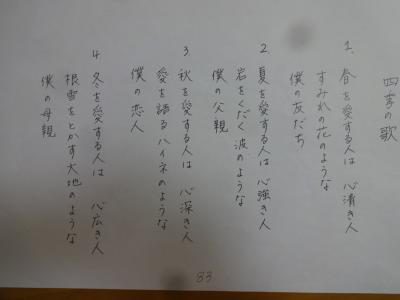 四季の歌
1. 春を愛する人は 心清き人
すみれの花のような
僕の友だち
2. 夏を愛する人は 心強き人
岩をくだく波のような
僕の父親
3. 秋を愛する人は 心深き人
愛を語るハイネのような
僕の恋人
4. 冬を愛する人は 心広き人
根雪をとかす大地のような
僕の母親
83